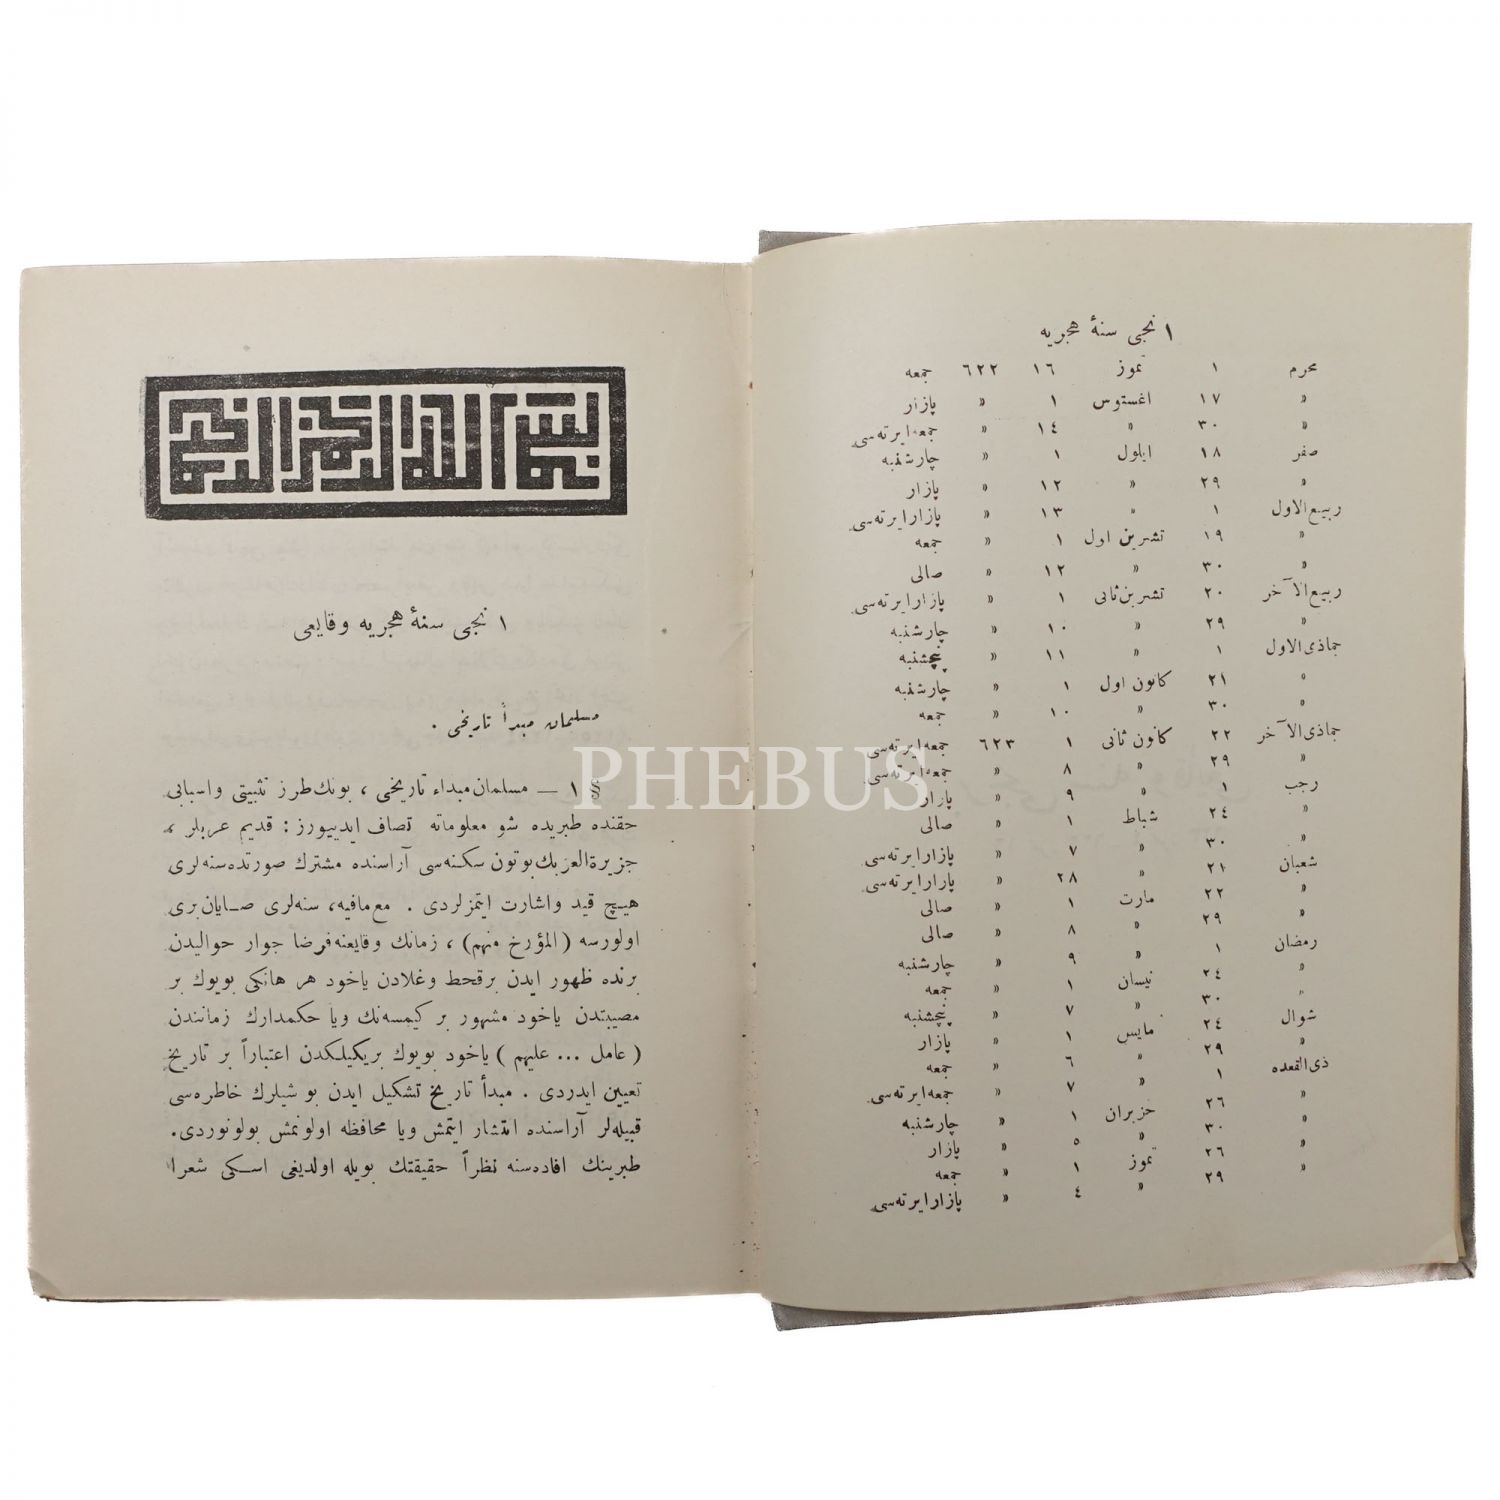 ١ نجی سنۀ هجریه
محرم ١ تموز ١٦ ٦٢٢ جمعه
« ١٧ اغستوس ١ « پازار
« ٣٠ « ١٤ « جمعه ایرته‌سی
صفر ١٨ ایلول ١ « چارشنبه
« ٢٩ « ١٢ « پازار
ربیع‌الاول ١ « ١٣ « پازار ایرته‌سی
« ١٩ تشرین اول ١ « جمعه
« ٣٠ « ١٢ « صالی
ربیع‌الآخر ٢٠ تشرین ثانی ١ « پازار ایرته‌سی
« ٢٩ « ١٠ « چارشنبه
جماذی الاول ١ « ١١ « پنچشنبه
« ٢١ كانون اول ١ « چارشنبه
« ٣٠ « ١٠ « جمعه
جماذی الآخر ٢٢ كانون ثانی ١ ٦٢٣ جمعه ایرته‌سی
« ٢٩ « ٨ « جمعه ایرته‌سی
رجب ١ « ٩ « پازار
« ٢٤ شباط ١ « صالی
« ٣٠ « ٧ « پازار ایرته‌سی
شعبان ٢١ « ٢٨ « پازار ایرته‌سی
« ٢٢ مارت ١ « صالی
« ٢٩ « ٨ « صالی
رمضان ١ « ٩ « چارشنبه
« ٢٤ نیسان ١ « جمعه
« ٣٠ « ٧ « پنچشنبه
شوال ٢٤ مایس ١ « پازار
« ٢٩ « ٦ « جمعه
ذی القعده ١ « ٧ « جمعه ایرته‌سی
« ٢٦ حزیران ١ « چارشنبه
« ٣٠ « ٥ « پازار
« ٢٦ تموز ١ « جمعه
« ٢٩ « ٤ « پازار ایرته‌سی
بسم الله الرحمن الرحیم
١ نجی سنۀ هجریه وقایعی
مسلمان مبدأ تاریخی .
§ ١ — مسلمان مبداء تاریخی ، بونك طرز تثبیتی واسبابی
حقنده طبریده شو معلوماته تصادف ایدییورز : قدیم عربلر ،
جزیرة‌العربك بوتون سكنه‌سی آراسنده مشترك صورتده سنه‌لری
هیچ قید واشارت ایتمزلردی . مع‌مافیه، سنه‌لری صایان‌بری
اولورسه (المؤرخ منهم) ، زمانك وقایعنه فرضا جوار حوالیدن
برنده ظهور ایدن برقحط وغلادن یاخود هر هانكی بویوك بر
مصیبتدن یاخود مشهور بر كیمسه‌نك ویا حكمدارك زمانندن
( عامل ... علیهم ) یاخود بویوك بریكیلكدن اعتباراً بر تاریخ
تعیین ایدردی . مبدأ تاریخ تشكیل ایدن بو شیلرك خاطره‌سی
قبیله‌لر آراسنده انتشار ایتمش ویا محافظه اولونمش بولونوردی.
طبرینك افاده‌سنه نظراً حقیقتك بویله اولدیغی اسكی شعرا
PHEBUS